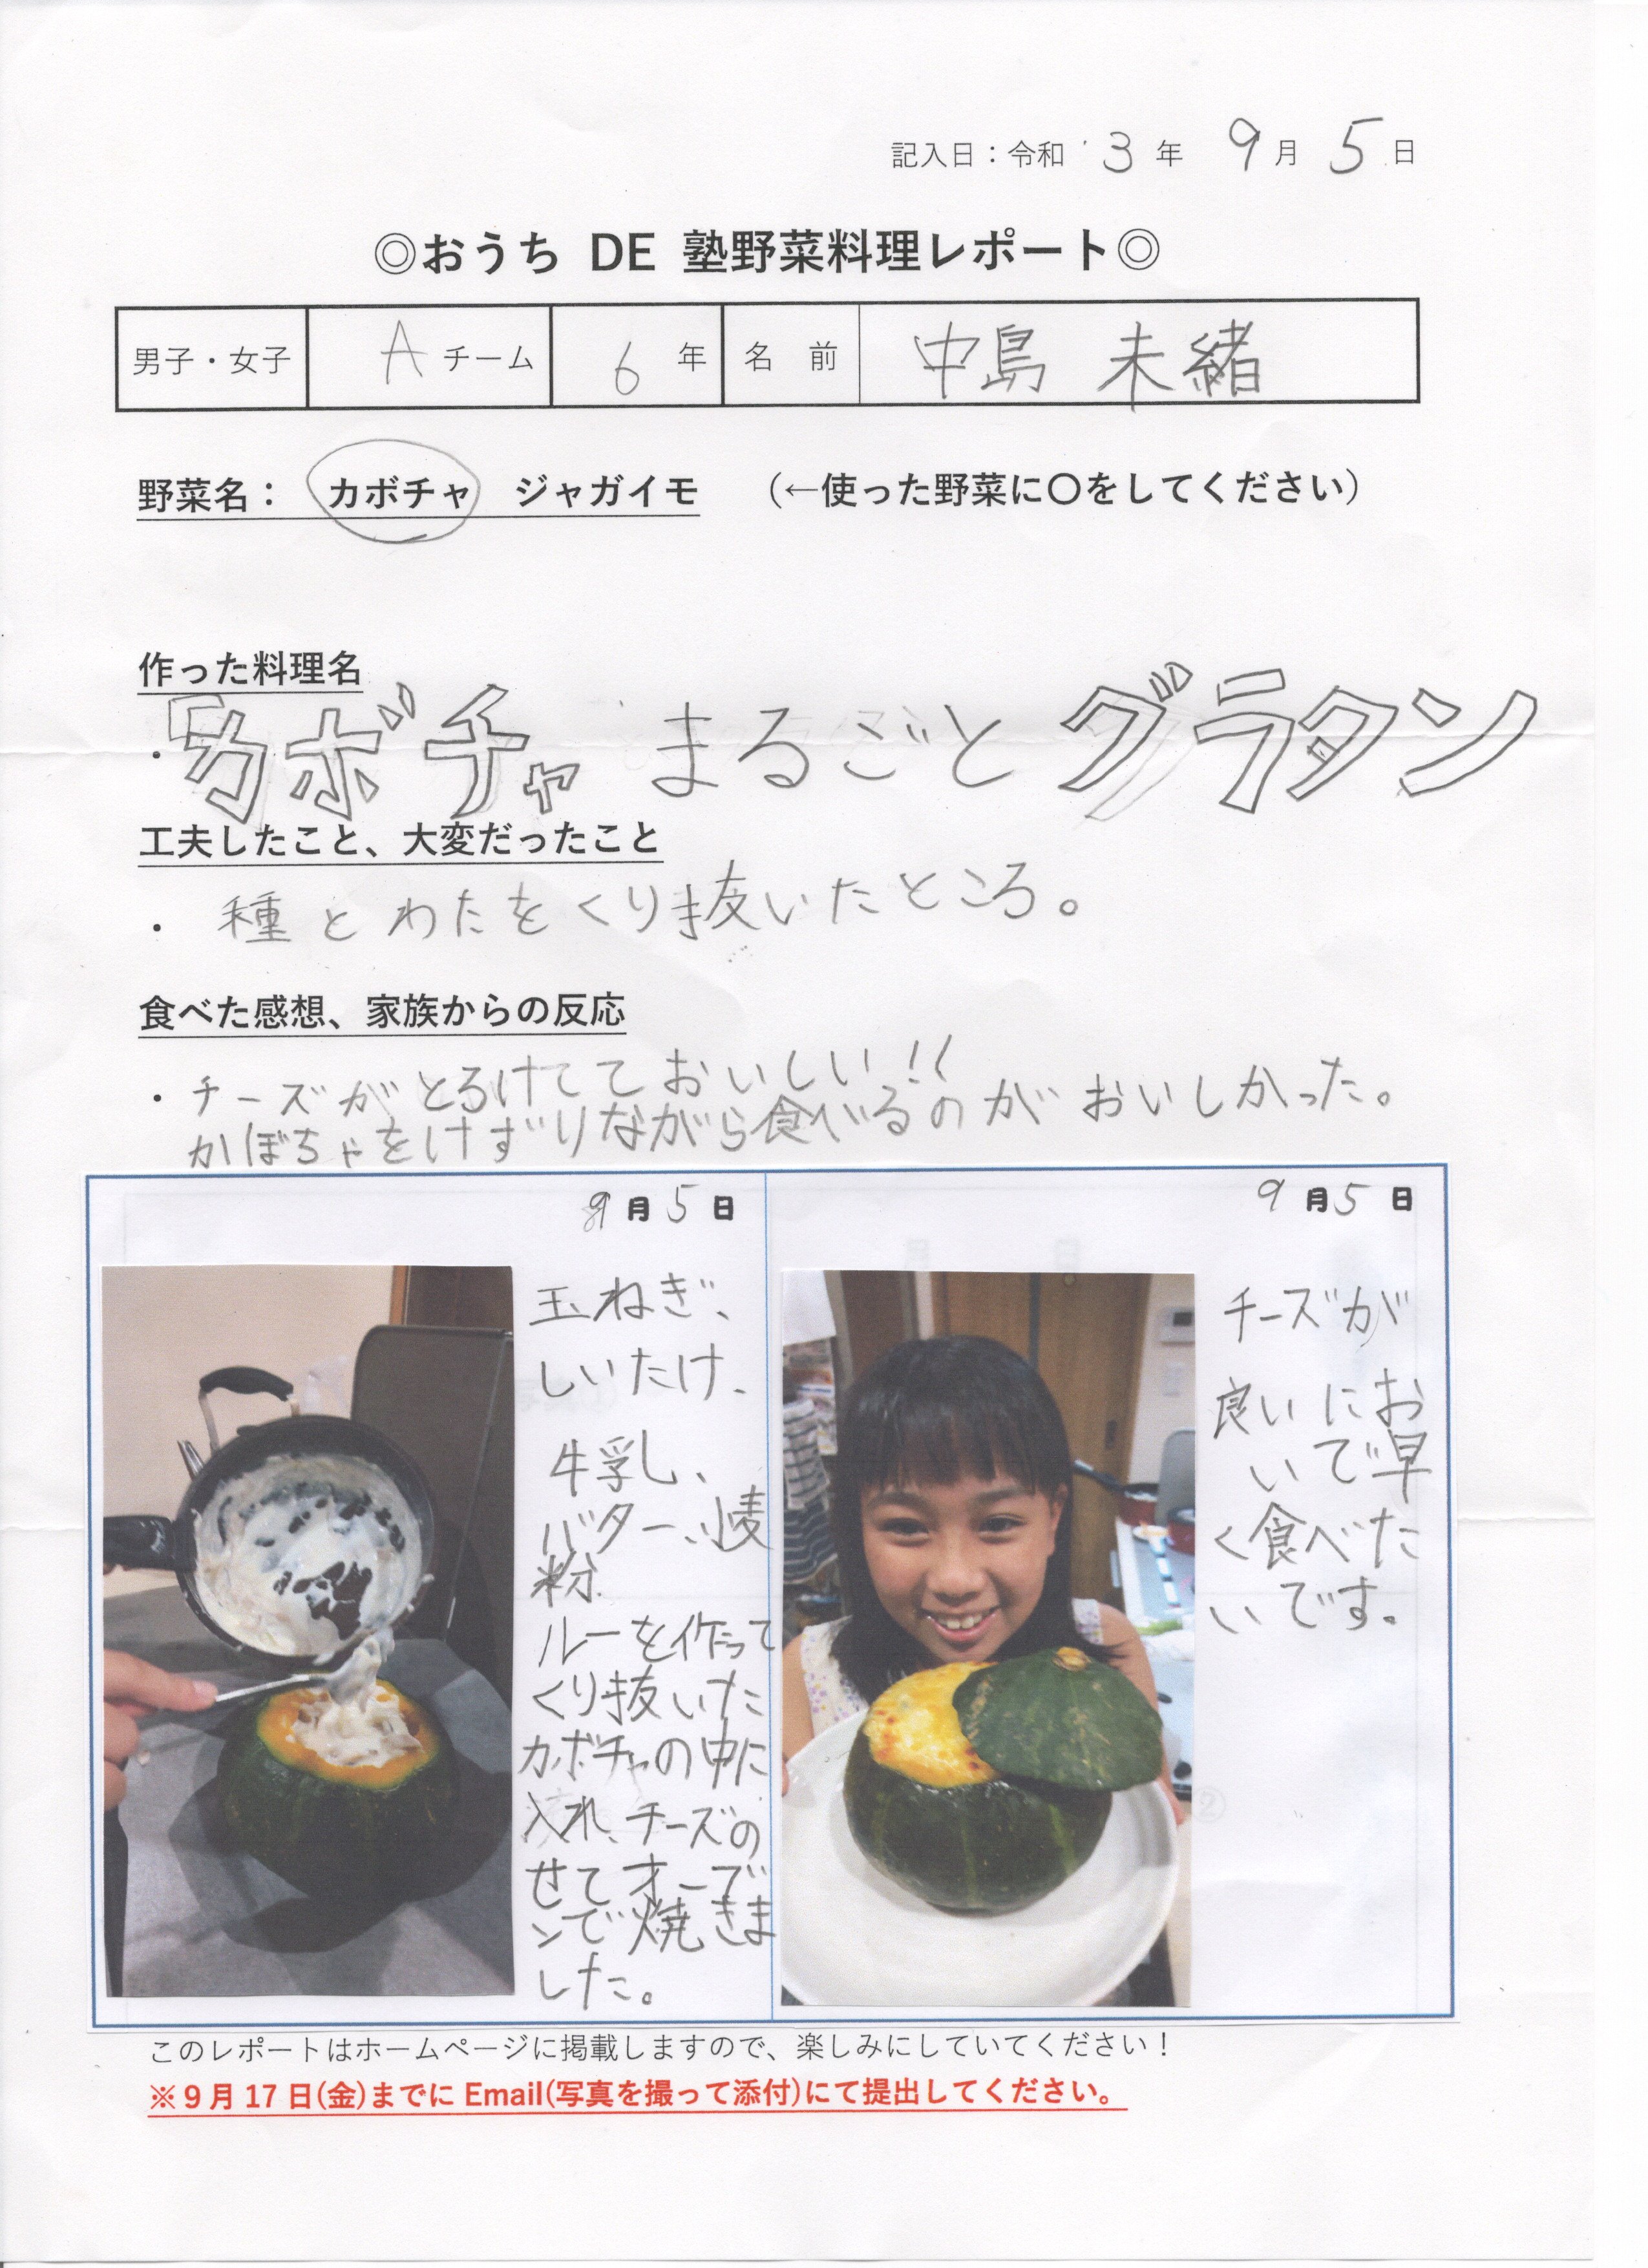 記入日：令和 3 年 9 月 5 日
◎おうち DE 塾野菜料理レポート◎
男子・女子 A チーム 6 年 名 前 中島 未緒
野菜名： カボチャ ジャガイモ （←使った野菜に〇をしてください）
作った料理名
・「カボチャ まるごと グラタン
工夫したこと、大変だったこと
・ 種とわたをくり抜いたところ。
食べた感想、家族からの反応
・チーズがとろけてておいしい!!
かぼちゃをけずりながら食べるのがおいしかった。
9月5日
玉ねぎ、
しいたけ、
牛乳し、
バター、小麦
粉
ルーを作って
くり抜いた
カボチャの中に
入れ、チーズの
せてオーブ
ンで焼きま
した。
9月5日
チーズが
良いにお
いで早
く食べた
いです。
このレポートはホームページに掲載しますので、楽しみにしていてください！
※９月 17 日(金)までに Email(写真を撮って添付)にて提出してください。